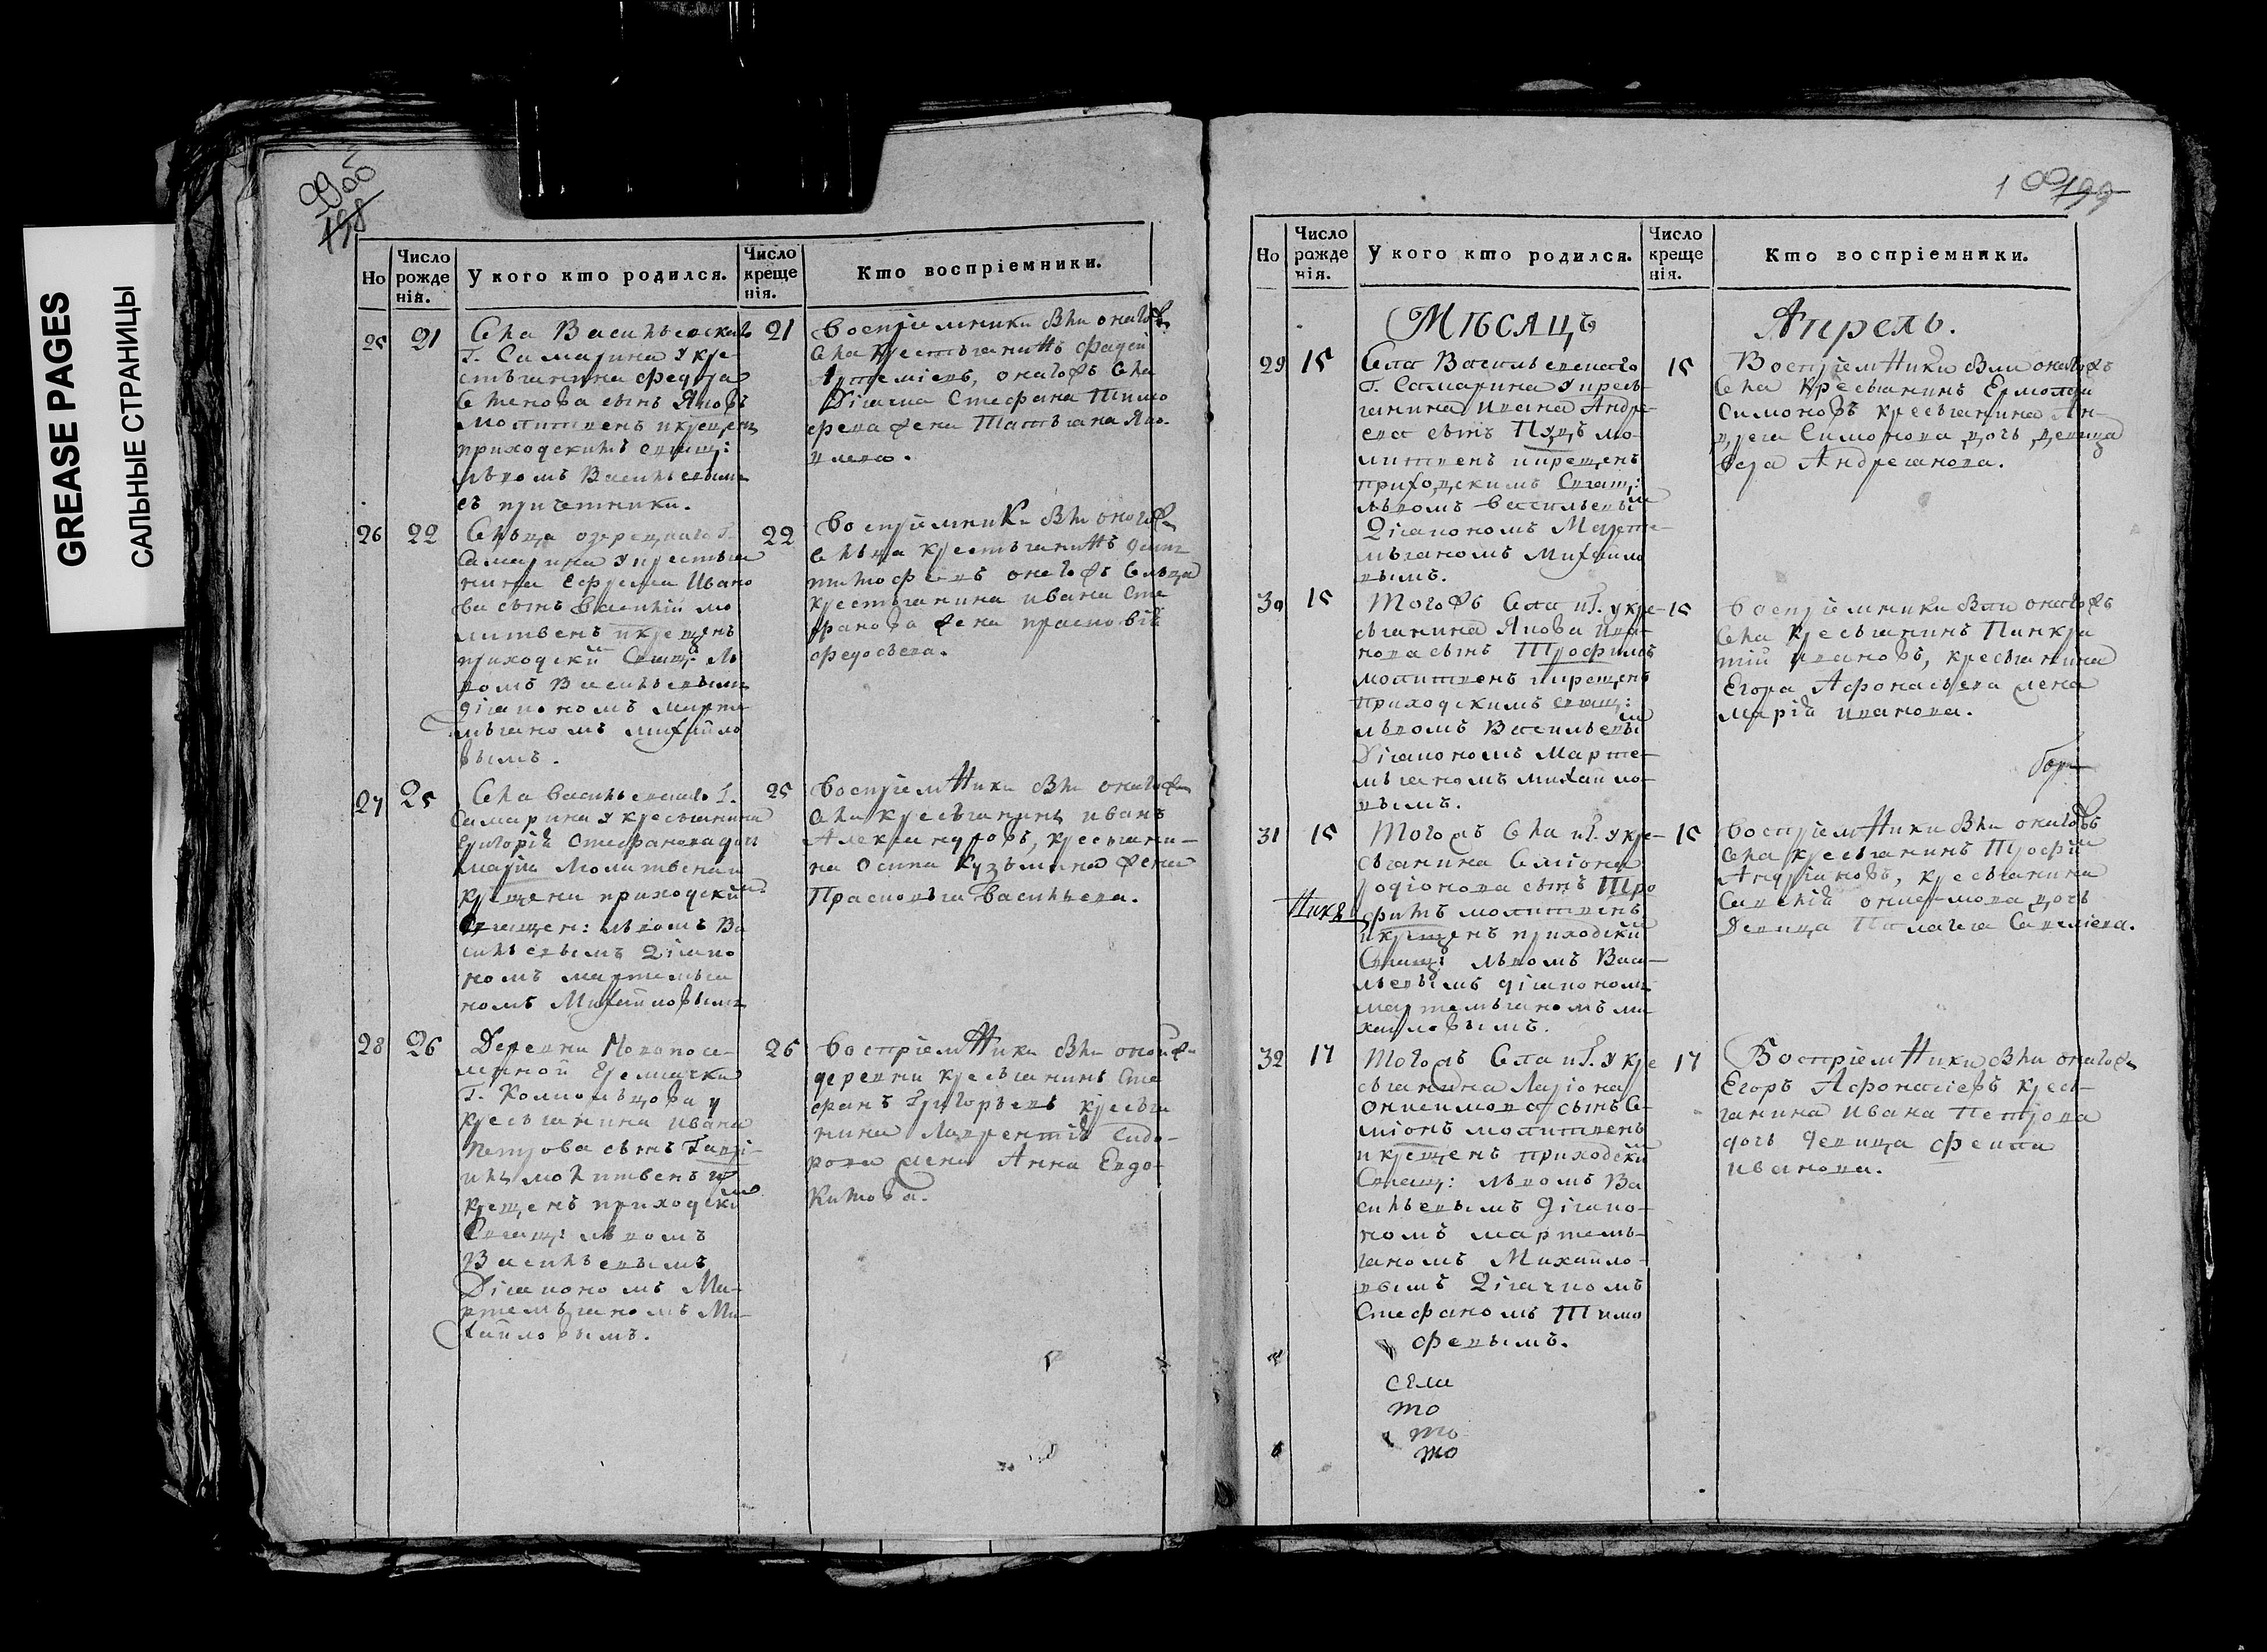 GREASE PAGES
САЛЬНЫЕ СТРАНИЦЫ
198
Но
Число рожде нія.
У кого кто родился.
Число креще нія.
Кто воспріемники.
25
21
Села Васильевскаго
Г. Самарина у кре-
стьянина Федора
Семенова сынъ Яковъ
молитвенъ и крещенъ
приходскимъ свящ:
Львомъ Васильевымъ
съ причетники.
21
Воспріемники были онагожъ
села крестьянинъ Фадей
Артеміевъ, онагожъ села
Діячка Стефана Тимо
феева жена Татьяна Яко-
влева.
26
22
Сельца
Самарина у крестья
нина Ефрема Ивано
ва сынъ Василій мо
литвенъ и крещенъ
приходскимъ Свящ: Ль
вомъ Васильевымъ
діякономъ Марте
мьяномъ Михайло
вымъ.
22
Воспріемники были оногожъ
сельца крестьянинъ
онагожъ сельца
крестьянина Ивана Сте
фанова жена Прасковія
Федосеева.
27
25
Села Васильевскаго Г.
Самарина у крестьянина
Григорія Стефанова дочь
Марія молитвена и
крещена приходскимъ
Священ: Львомъ Ва
сильевымъ Діяко
номъ Мартемья
номъ Михайловымъ
25
Воспріемники были онагожъ
села крестьянинъ Иванъ
Александровъ, крестьяни-
на Осипа Кузьмина жена
Прасковья Васильева.
28
26
Деревни Новопосе-
Г.
крестьянина Ивана
Петрова сынъ Гаврі-
илъ молитвенъ и
крещенъ приходским
Свящ: Львомъ
Васильевымъ
Діякономъ Ма-
ртемьяномъ Ми-
хайловымъ.
26
Воспріемники были оной же
деревни крестьянинъ Сте
фанъ Григорьевъ крестья
нина Лаврентія Сидо-
рова жена Анна Евдо-
кимова.
199
Но
Число рожде нія.
У кого кто родился.
Число креще нія.
Кто воспріемники.
Мѣсяцъ Апрель.
29
15
Села Васильевскаго
Г. Самарина у кресь-
янина Ивана Андре-
ева сынъ мо-
литвенъ и крещенъ
приходскимъ Свящ:
Львомъ Васильевым
Діякономъ Марте-
мьяномъ Михайло
вымъ.
15
Воспріемники были онагожъ
села кресьянинъ Ермолай
Симоновъ кресьянина Ан-
дрея Симонова дочь девица
Вера Андреянова.
30
15
Тогожъ Села и Г. у кре-
сьянина Якова Ива-
нова сынъ Трофимъ
молитвенъ и крещенъ
приходскимъ свящ:
Львомъ Васильевым
Діякономъ Марте-
мьяномъ Михайло-
вымъ.
15
Воспріемники были онагожъ
села кресьянинъ Панкра
тій Ивановъ, кресьянина
Егора Афонасьева жена
Марія Иванова.
31
15
Тогожъ Села и Г. у кре-
сьянина Симіона
Родіонова сынъ Тро
фимъ молитвенъ
и крещенъ приходским
Свящ: Львомъ Васи-
льевымъ діякономъ
Мартемьяномъ Ми
хайловымъ.
15
Воспріемники были онагожъ
села кресьянинъ Трофим
Андріановъ, кресьянина
Савелія Онисимова дочь
Девица Палагея Савеліева.
32
17
Тогожъ Села и Г. у кре
сьянина Ларіона
Онисимова сынъ Си-
міонъ молитвенъ
и крещенъ приходским
Свящ: Львомъ Ва
сильевымъ Діяко-
номъ Мартемь-
яномъ Михайло-
вымъ Діячкомъ
Стефаномъ Тимо
феевымъ.
17
Воспріемники были онагожъ
Егоръ Афонасіевъ кресь-
янина Ивана Петрова
дочь девица
Иванова.
сели
то
то
то